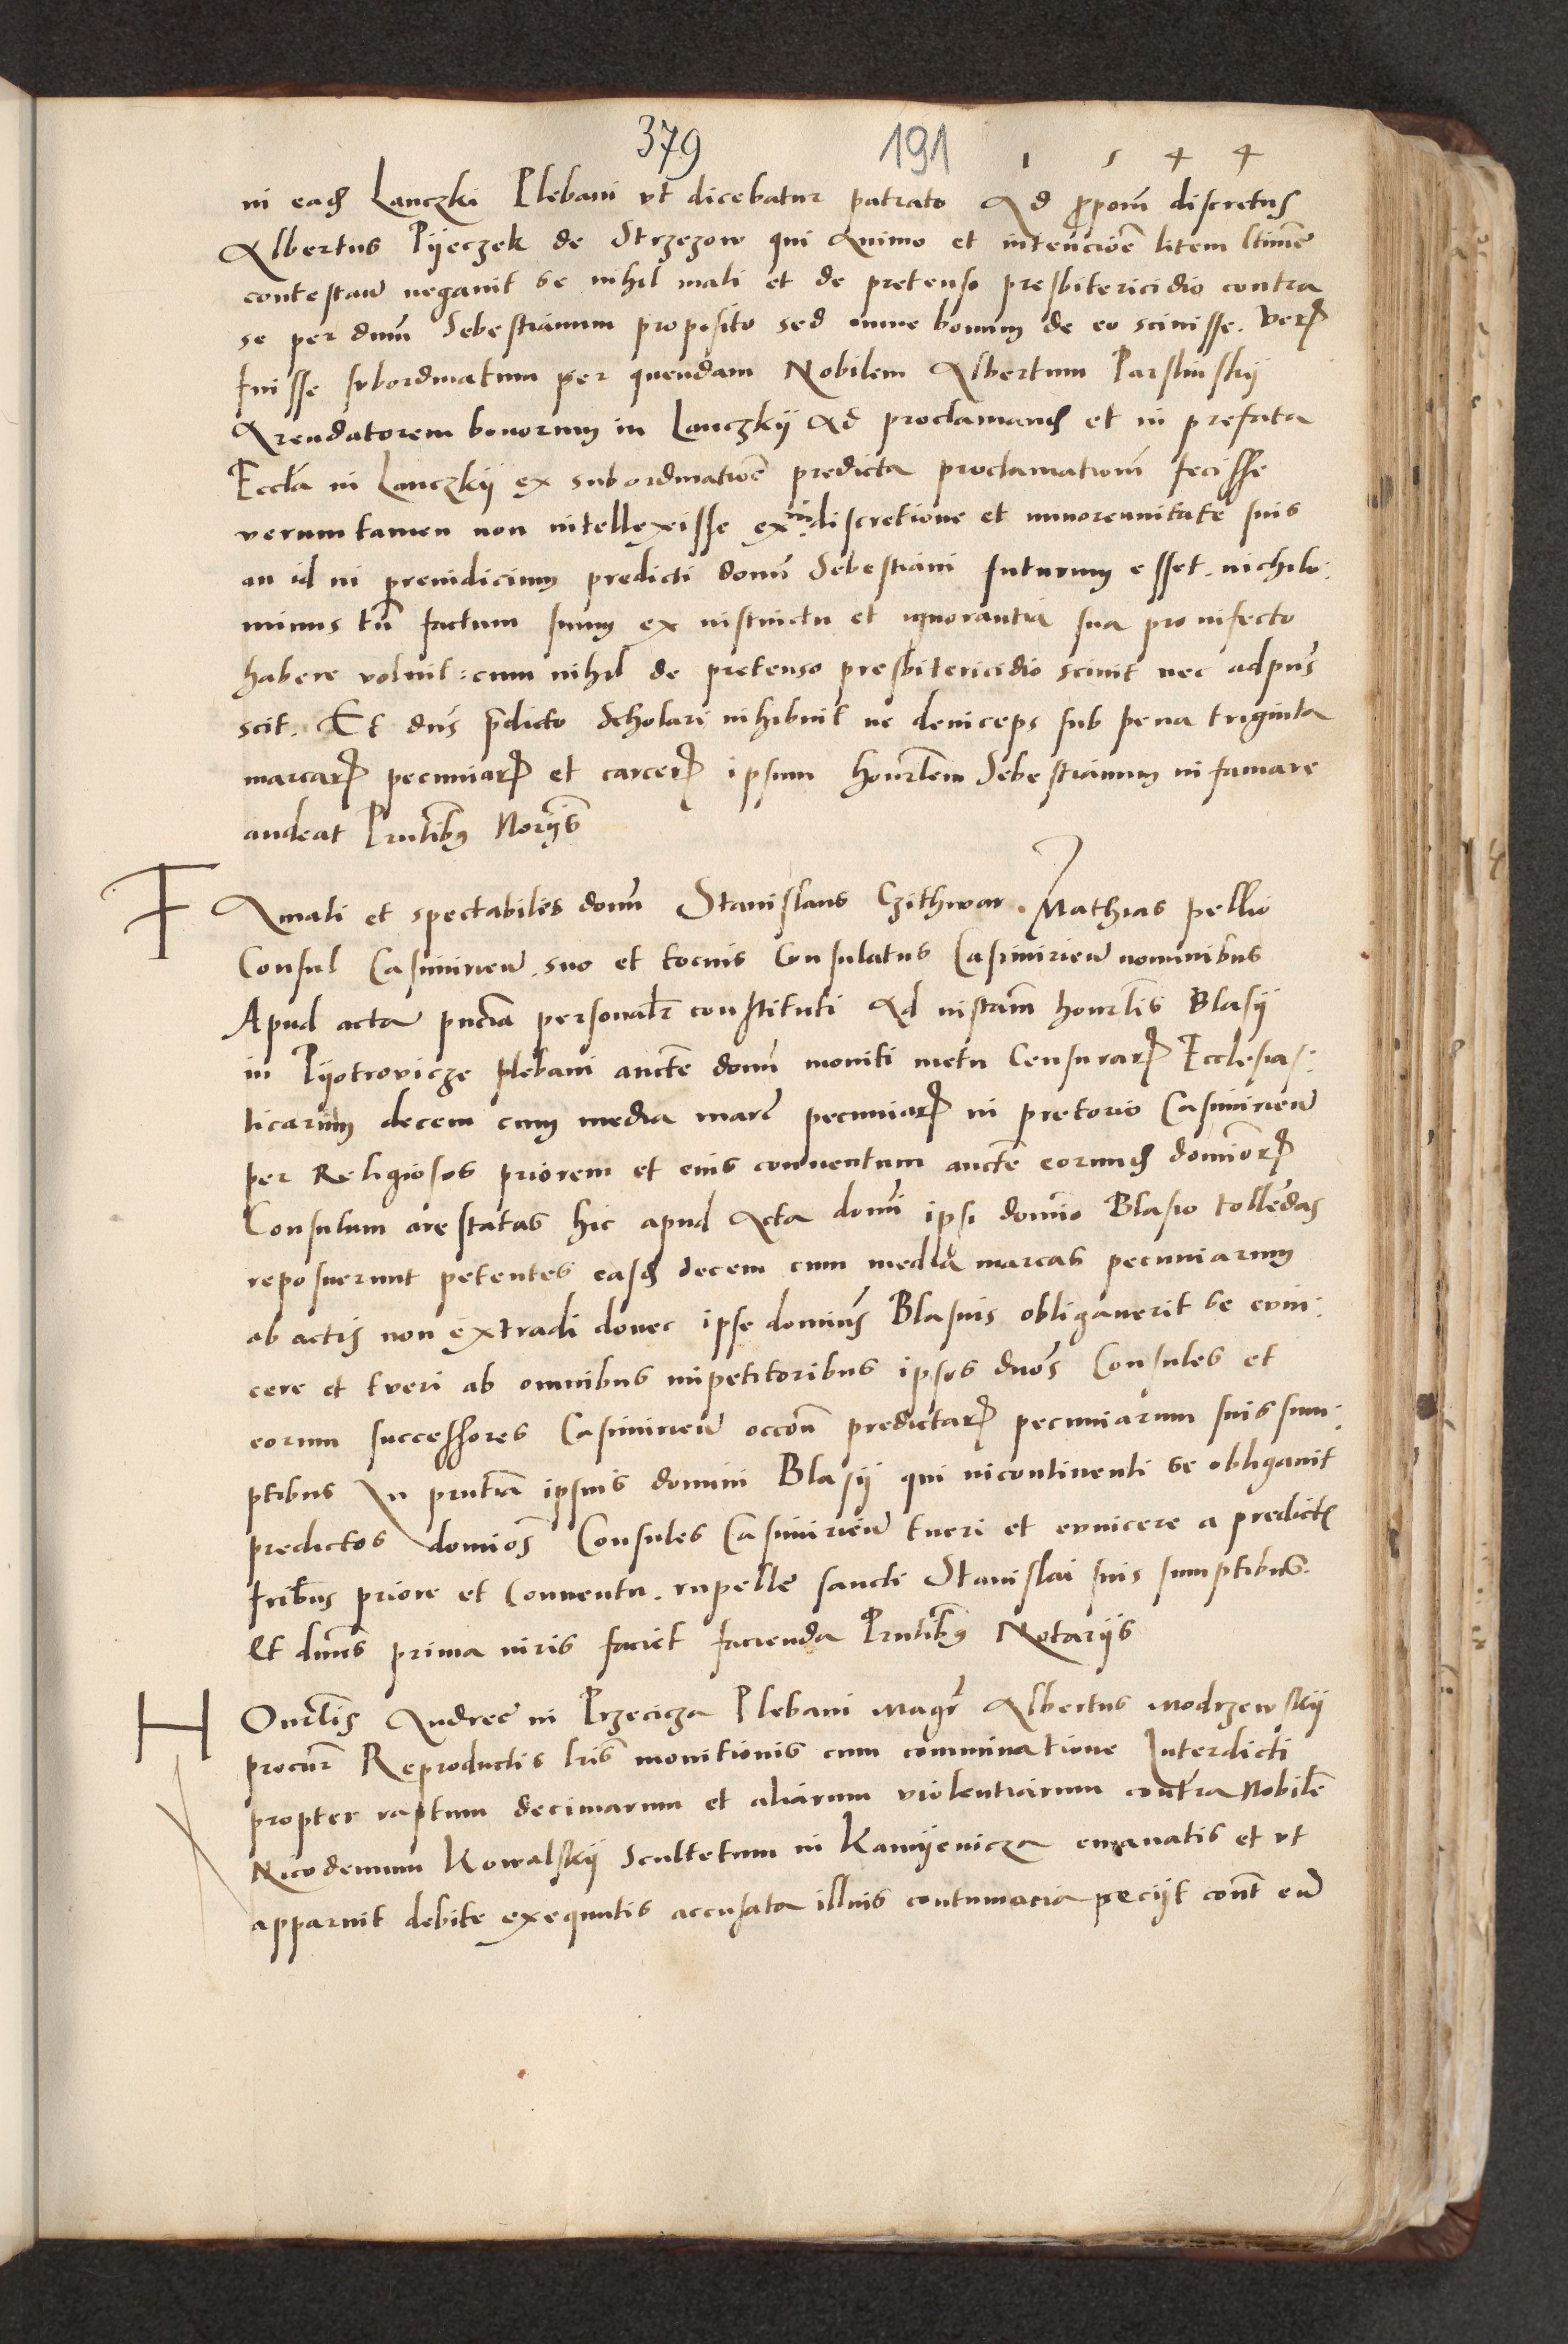 379 191 1 5 4 4
in eadē Lanczki Plebani vt dicebatur patrato Ad ꝓpoīm discretus
Albertus Pyeczek de Strzezow qui Animo et intencioē litem ltimē
contestaɳ negauit se nihil mali et de pretenso presbitericidio contra
se per dnm̄ Sebestianum proposito sed omne bonum de eo sciuisse. Verꝝ
fuisse subordinatum per quendam Nobilem Albertum Parskinskÿ
Arendatorem bonorum in Lanczkÿ Ad proclamandū et in prefata
Eccl̄a in Lanczkÿ ex subordinatioē predicta proclamationē fecisse
verumtamen non intellexisse ex indiscretione et minorennitate suis
an id in preiudicium predicti domī Sebestiani futurum esset. nichilo:
minus tn̄ factum suum ex instinctu et ignorantia sua pro infecto
habere voluit: cum nihil de pretenso presbitericidio sciuit nec adpn̄s
scit. Et dn̄s p̄dicto Scholari inhibuit ne deinceps sub pena triginta
marcarꝝ pecuniarꝝ et carcerꝝ ipsum honorl̄em Sebestianum infamare
audeat Pn̄tibus Norijs
F Amati et spectabiles domī Stanislaus Czithwar. Mathias pellio
Consul Casimirieɳ. suo et tocius Consulatus Casimirieɳ nominibus
Apud acta pn̄cia personal̄r constituti Ad instam̄ honorl̄is Blasÿ
in Pÿotrovicze plebani aucte domī moniti metu Censurarꝝ Ecclesias:
ticarum decem cum media marc̄ pecuniarꝝ in pretorio Casimirieɳ
per Religiosos priorem et eius conuentum aucte eorundē dominorꝝ
Consulum arestatas hic apud Acta domī ipsi domino Blasio tollendas
reposuerunt petentes easdē decem cum media marcas pecuniarum
ab actis non extradi donec ipse dominus Blasius obligauerit se euin:
cere et tueri ab omnibus impetitoribus ipsos dnōs Consules et
eorum successores Casimirieɳ occōn predictarꝝ pecuniarum suis sum:
ptibus In pn̄tia ipsius domini Blasÿ qui incontinenti se obligauit
predictos dominōs Consules Casimirieɳ tueri et euincere a predictis
fribus priore et Conuentu. rupelle sancti Stanislai suis sumptibus.
Et dn̄us prima iuris faciet facienda Pn̄tibus Notarijs
H Onorl̄is Andree in Przecicza Plebani Magr̄ Albertus Modrzewskÿ
procur̄ Reproductis lrīs monitionis cum comminatione Interdicti
propter raptum decimarum et aliarum violentiarum contra Nobilē
Nicodemum Kowalskÿ Scultetum in Kamÿenicza emanatis et vt
apparuit debite exequutis accusata illius contumacia peciÿt cont̄ eū